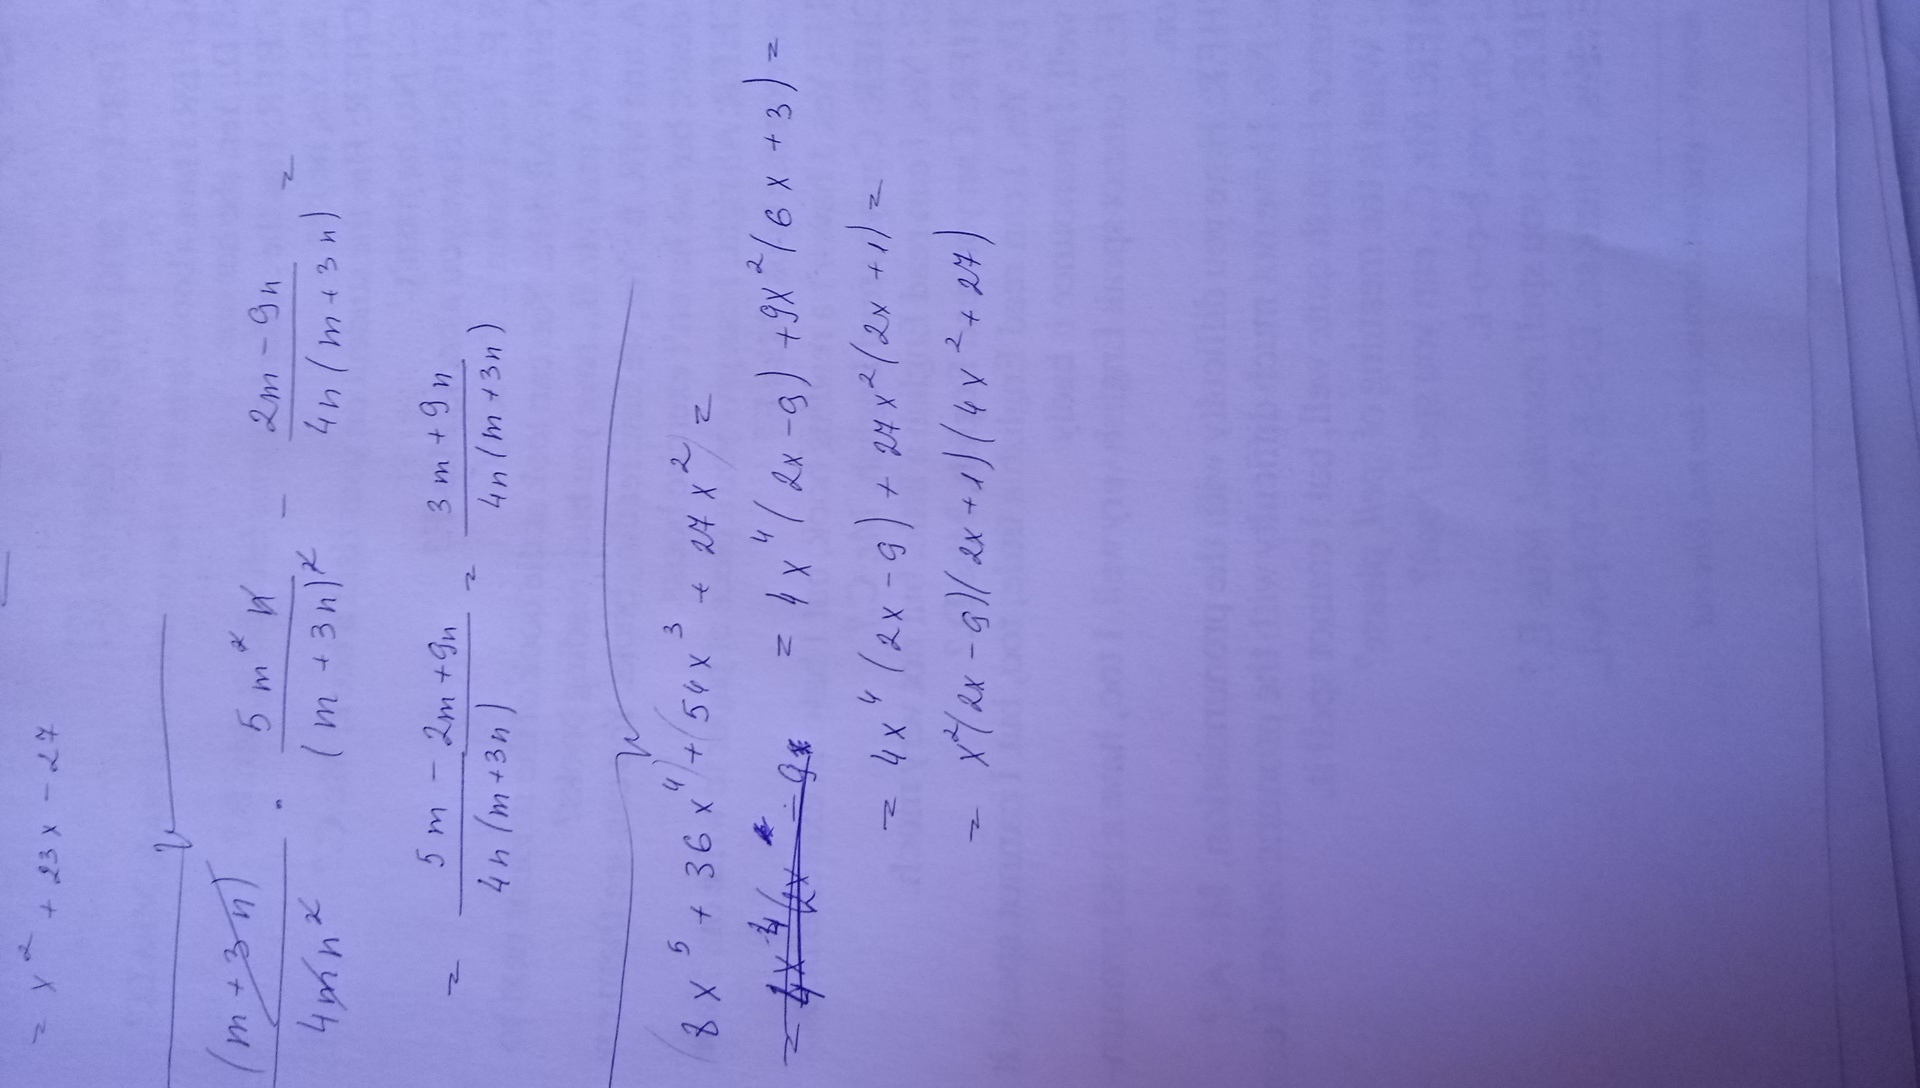 = x² + 23x - 27
(m + 3n) / 4mn² · 5m²n / (m + 3n)² - 2m - 9n / 4n(m + 3n) =
= 5m - 2m + 9n / 4n(m + 3n) = 3m + 9n / 4n(m + 3n)
(8x⁵ + 36x⁴) + (54x³ + 27x²) =
= 4x⁴(2x - 9) + 9x²(6x + 3) =
= 4x⁴(2x - 9) + 27x²(2x + 1) =
= x²(2x - 9)(2x + 1)(4x² + 27)